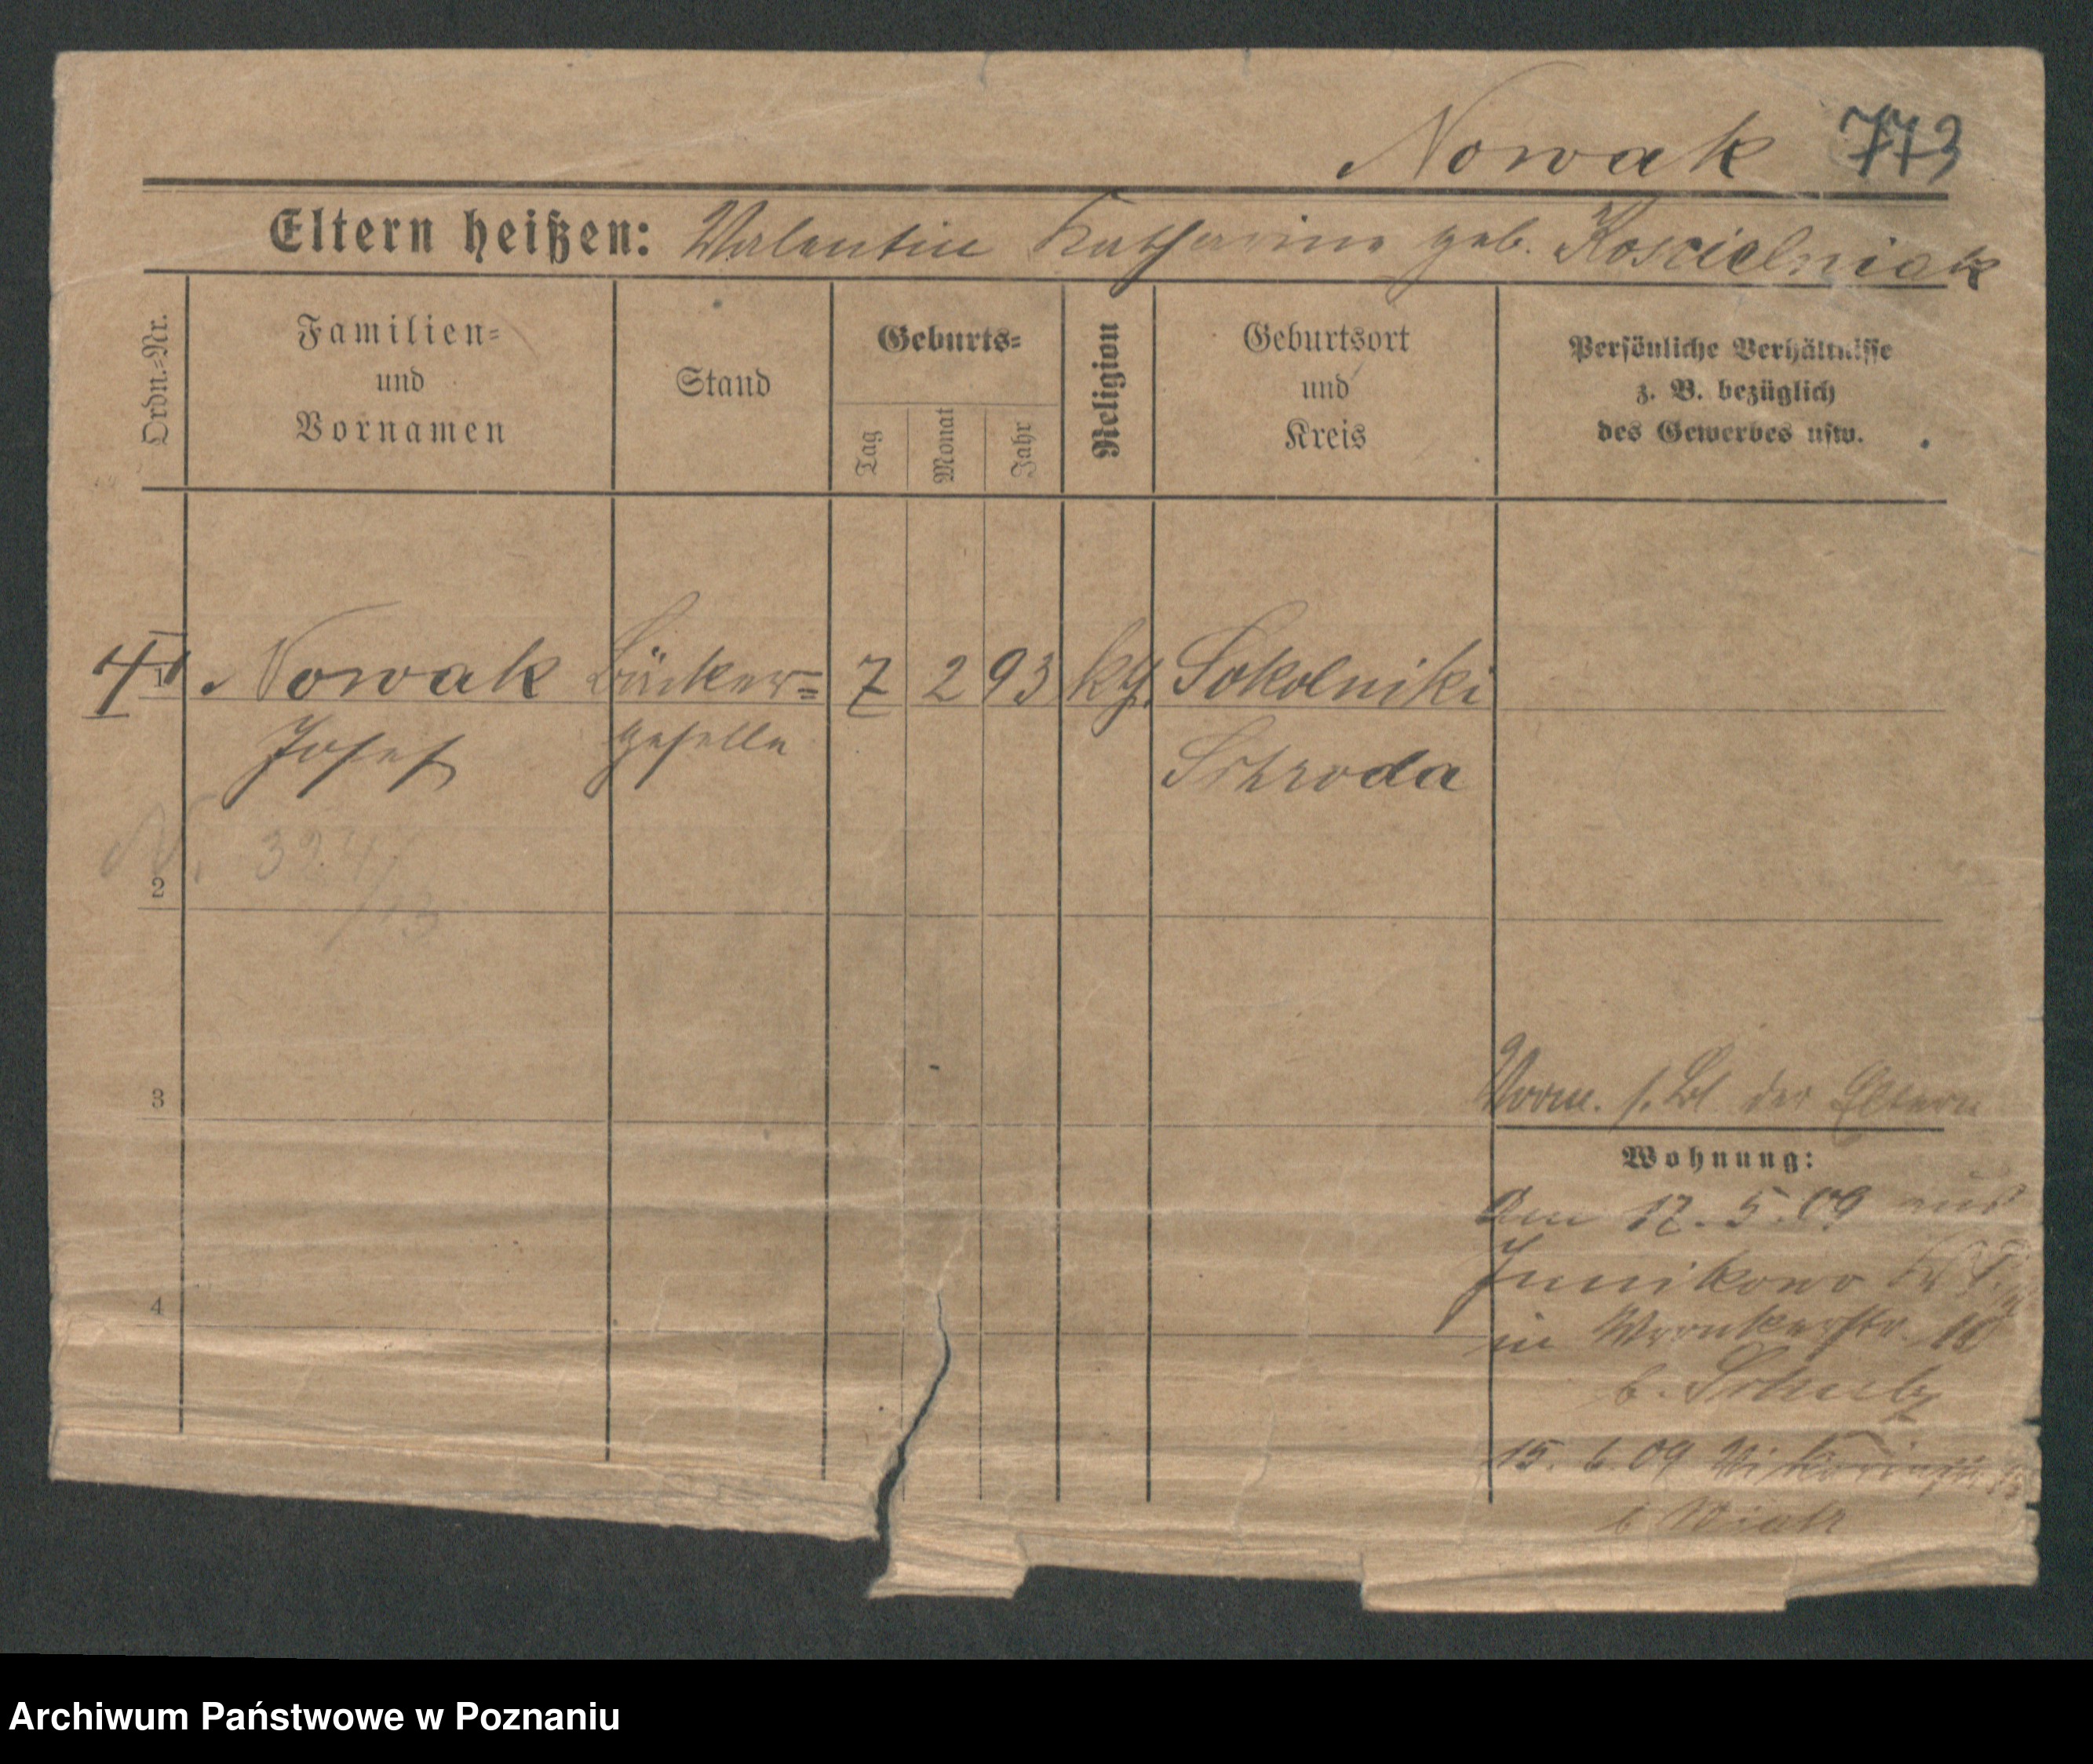 Nowak 773
Eltern heißen: Valentin Katharina geb. Koscielniak
Ordn.=Nr.
Familien=
und
Vornamen
Stand
Geburts=
Tag
Monat
Jahr
Religion
Geburtsort
und
Kreis
Persönliche Verhältnisse
z. B. bezüglich
des Gewerbes usw.
1 Nowak Bäcker= 7 2 93 kg. Sokolniki
Josef geselle Schroda
N. 3247
/13
2
3
4
Vorm. s. Bl der Eltern
Wohnung:
Am 17.5.09 aus
Junikowo Kr P.
in Wronkerstr. 10
b. Schulz
15.6.09
b
Archiwum Państwowe w Poznaniu